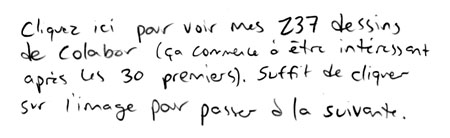 Cliquez ici pour voir mes 237 dessins
de Colabor (ça commence à être intéressant
après les 30 premiers). Suffit de cliquer
sur l'image pour passer à la suivante.